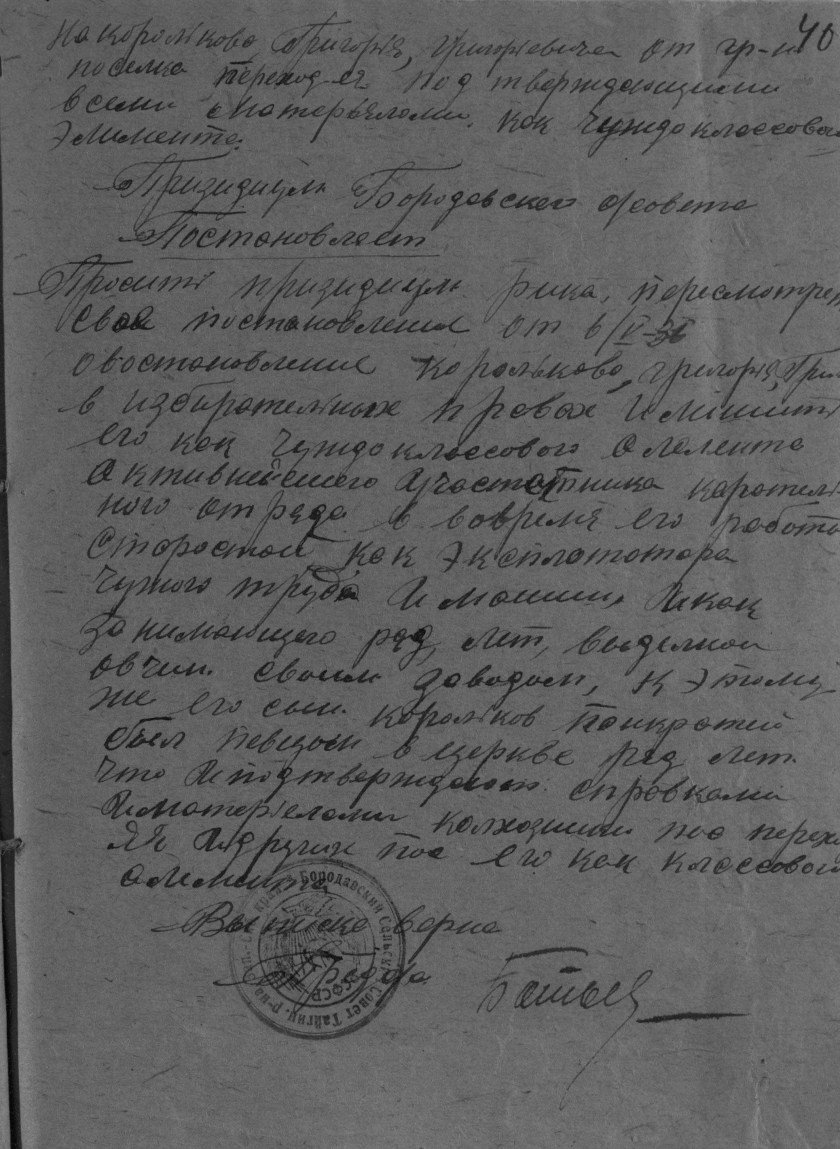 40
на королькова, Григория, григорьевича от гр-н
поселка переход-ея под тверждающими
всеми матерьялами. как чуждоклассовый
Элимента.
Призидиум Бородавского с/совета
Постановляет
Просить призидиум рика, пересмотреть
свое постановления от 6/V-36
овостановление королькова, григория, Гри
в избирательных правах И лишить
его как чуждоклассового элемента
активнейшего Участника каратель
ного отряда и вовремя его работы
Старостой как Эксплототора
чужого труда И машин, И как
занимающего ряд, лет, выделкой
овчин своим заводом, к этому
же его сын корольков панкратей
был певцом в церкве ряд лет.
что И подтверждают справками
И матерьелами колхозники пос перех
ея И других пос его как классового
элимента
Выписка верна
Батыев
Бородавский Сельский Совет Тайгин. р-на
РСФСР